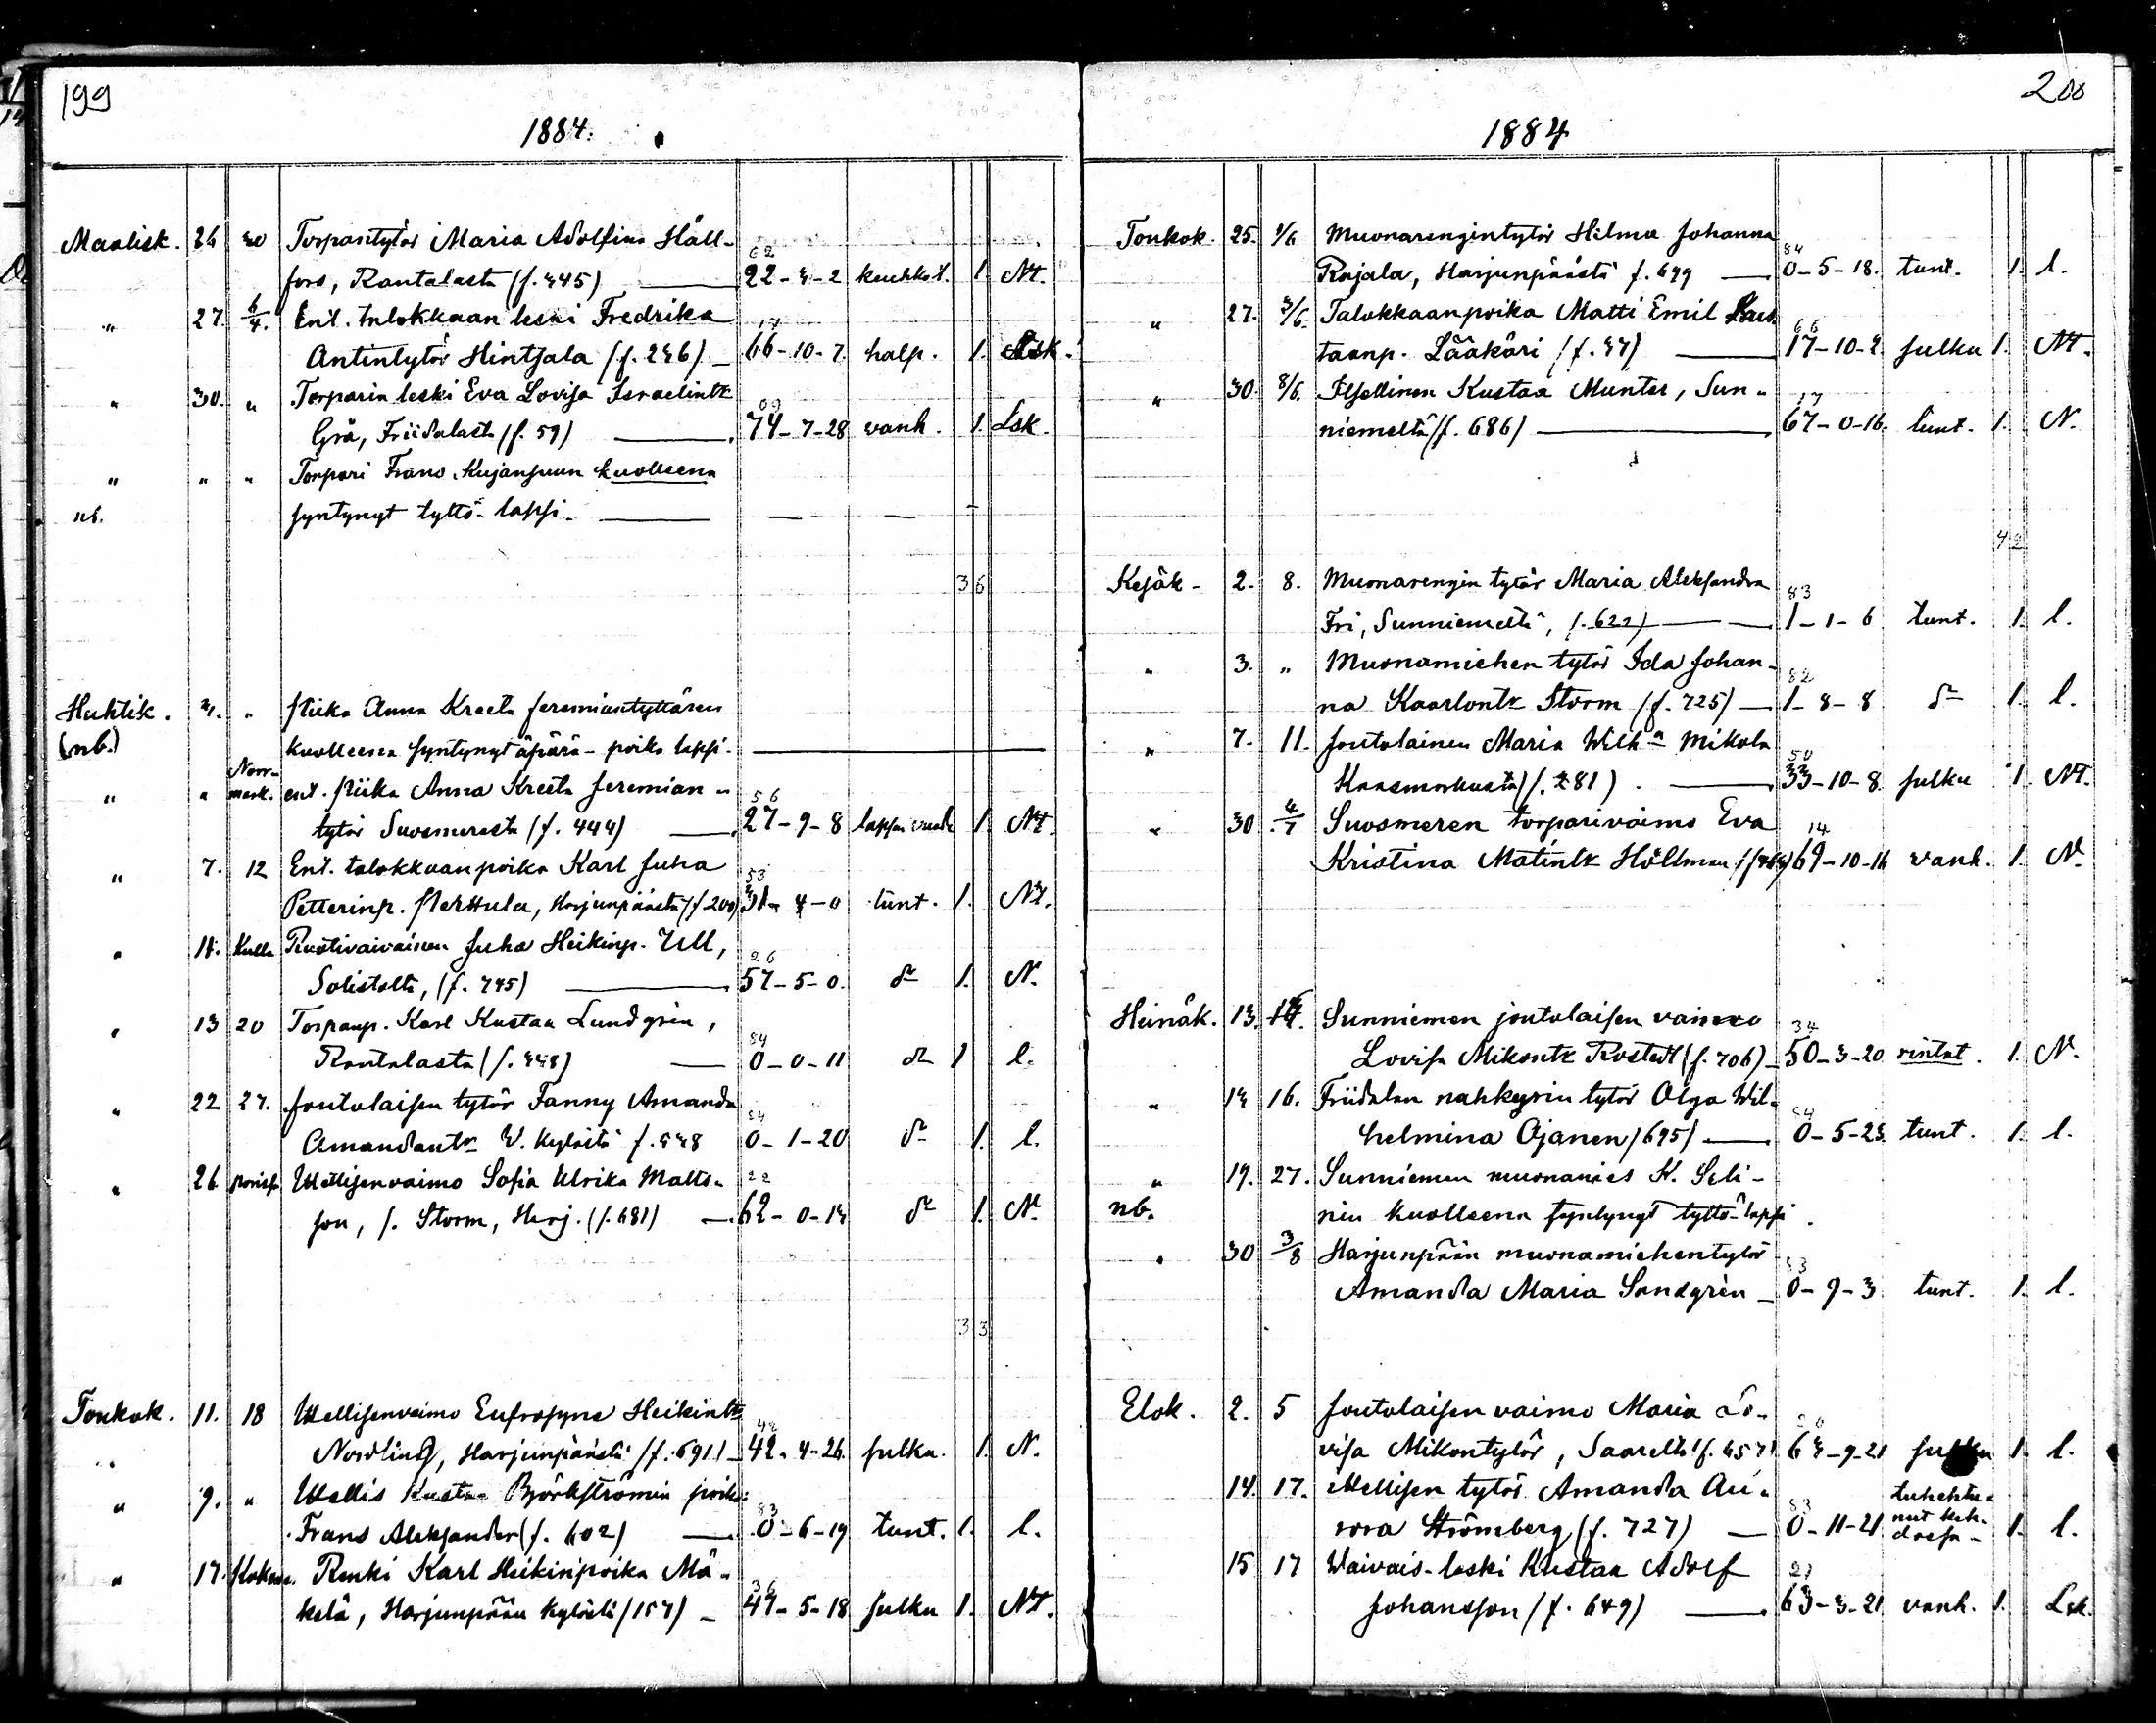 199
1884.
Maalisk. 26 30 Torpantytär Maria Adolfina Häll-
fors, Rantalasta (f. 445) 62 22-4-2 keuhkot. 1. Nt.
" 27. 6/4. Ent. talokkaan leski Fredrika
Antintytär Hintsala (f. 246) 17 66-10-7. halp. 1. Lsk.
" 30. " Torparin leski Eva Lovisa Israelintr
Grå, Friidalasta (f. 59) 09 74-7-28 vanh. 1. Lsk.
" " " Torpari Frans Kujansuun kuolleena
nb. syntynyt tyttö-lapsi.
3 6
Huhtik. 3. " Piika Anna Kreeta Jeremiantyttären
(nb.) kuolleena syntynyt äpärä-poika lapsi.
" " Norrmark. ent. Piika Anna Kreeta Jeremian-
tytär Suosmeresta (f. 444) 56 27-9-8 1 Nt.
" 7. 12 Ent. talokkaanpoika Karl Juha
Petterinp. Harjunpäästä (f. 200) 53 31-4-0 tunt. 1. Nt.
" 11. Kulla Ruotivaivainen Juha Heikinp. Ull,
(f. 745) 26 57-5-0. dr 1. N.
" 13 20 Torpanp. Karl Kustaa Lundgrén,
Rantalasta (f. 448) 84 0-0-11 dr 1 l.
" 22 27. Joutolaisen tytär Fanny Amanda
Amandantr V. kylästä f. 448 84 0-1-20 dr 1. l.
" 26 porissa Itsellisenvaimo Sofia Ulrika Matts-
son, s. Storm, Harj. (f. 681) 22 62-0-14 dr 1. N.
3 3
Toukok. 11. 18 Itsellisenvaimo Eufrosyne Heikintr
Nordlund, Harjunpäästä (f. 691) 42 42-4-26. sulku. 1. N.
" 9. " Itsellis Kustaa Björkströmin poika
Frans Aleksander (f. 602) 83 0-6-19 tunt. 1. l.
" 17. Renki Karl Heikinpoika Mä-
kelä, Harjunpään kylästä (157) 36 47-5-18 sulku 1. Nt.
200
1884
Toukok. 25. 1/6 Muonarengintytär Hilma Johanna
Rajala, Harjunpäästä f. 699 84 0-5-18. tunt. 1. l.
" 27. 3/6. Talokkaanpoika Matti Emil Kus-
taanp. Lääkäri (f. 47) 66 17-10-2 sulku 1. Nt.
" 30. 8/6. Itsellinen Kustaa Munter, Sun-
niemeltä (f. 686) 17 67-0-16. tunt. 1. N.
4 2
Kesäk- 2. 8. Muonarengin tytär Maria Aleksandra
Fri, Sunniemeltä, f. 622) 83 1-1-6 tunt. 1. l.
" 3. " Muonamiehen tytär Ida Johan-
na Kaarlontr Storm (f. 725) 82 1-8-8 dr 1. l.
" 7. 11. Joutolainen Maria Wilhna Mikola
Kaasmarkusta (f. 281) 50 33-10-8 sulku 1. Nt.
" 30. 4/7 Suosmeren torparivaimo Eva
Kristina Matintr Hollmen 14 69-10-16 vanh. 1. N.
Heinäk. 13. Sunniemen joutolaisen vaimo
Lovisa Mikontr Rostedt (f. 706) 34 50-3-20 rintat. 1. N.
" 14 16. Friidalan nahkurin tytär Olga Wil-
helmina Ojanen (695) 84 0-5-25 tunt. 1. l.
" 19. 27. Sunniemen muonamies K. Seli-
nb. nin kuolleena syntynyt tyttö-lapsi.
" 30 3/8 Harjunpään muonamiehentytär
Amanda Maria Sandgrén 83 0-9-3 tunt. 1. l.
Elok. 2. 5 Joutolaisen vaimo Maria Lo-
visa Mikontytär, Saarelta (f. 657) 20 64-9-21 sulku 1. l.
14. 17. Itsellisen tytär Amanda Au-
rora Strömberg (f. 727) 83 0-11-21 tukehtu-
nut keh-
dossa- 1. l.
15 17 Waivais-leski Kustaa Adolf
Johansson (f. 649) 21 63-3-21 vanh. 1. Lsk.